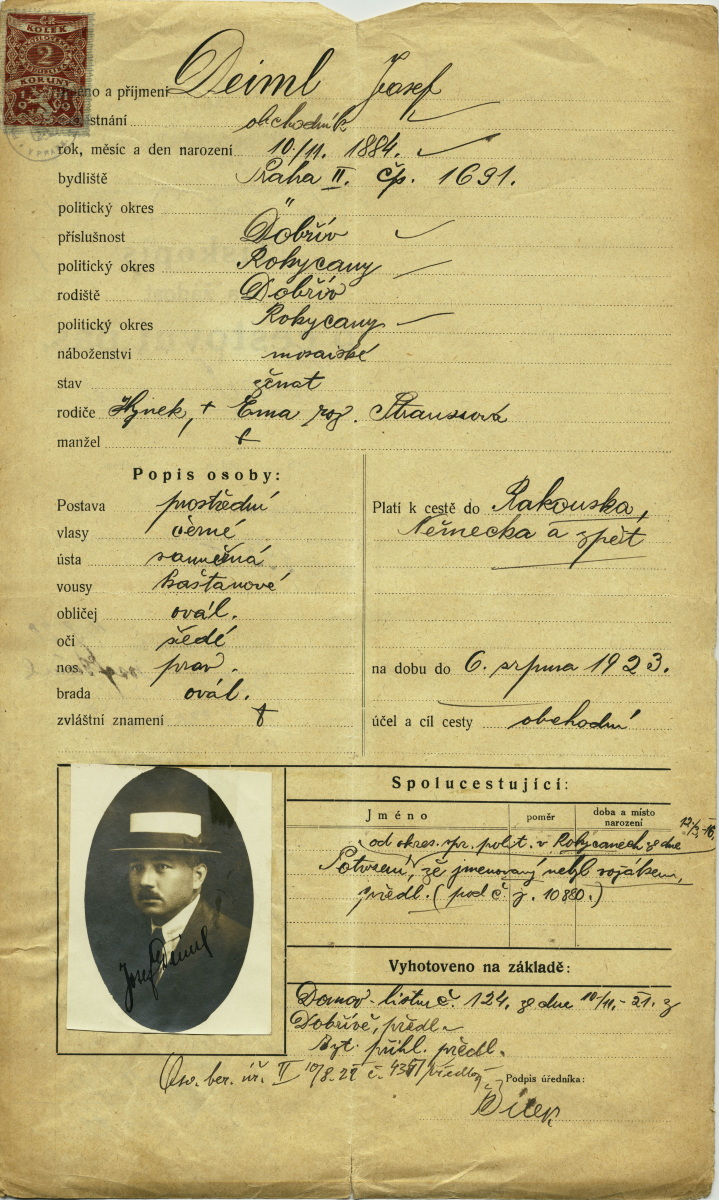 KOLEK
2
KORUNY
Jméno a příjmení Deiml Josef
zaměstnání obchodník
rok, měsíc a den narození 10/11. 1884.
bydliště Praha II. čp. 1691.
politický okres "
příslušnost Dobřív
politický okres Rokycany
rodiště Dobřív
politický okres Rokycany
náboženství mosaiské
stav ženat
rodiče Hynek, + Ema roz. Straussová
manžel +
Popis osoby:
Postava prostřední
vlasy černé
ústa souměrná
vousy kaštanové
obličej ovál.
oči šedé
nos prav.
brada ovál.
zvláštní znamení +
Platí k cestě do Rakouska,
Německa a zpět
na dobu do 6. srpna 1923.
účel a cíl cesty obchodní
Spolucestující:
Jméno poměr doba a místo narození
od okres. spr. polit. v Rokycanech ze dne
Potvrzení, že jmenovaný nebyl vojákem,
předl. (pod č. j. 10880.)
Josef Deiml
Vyhotoveno na základě:
Domov. listu č. 124. ze dne 10/11.-21. z
Dobřívě, předl.
Byt. přihl. předl.
Oso. ber. úř. II 10/8.22 č.
Podpis úředníka: